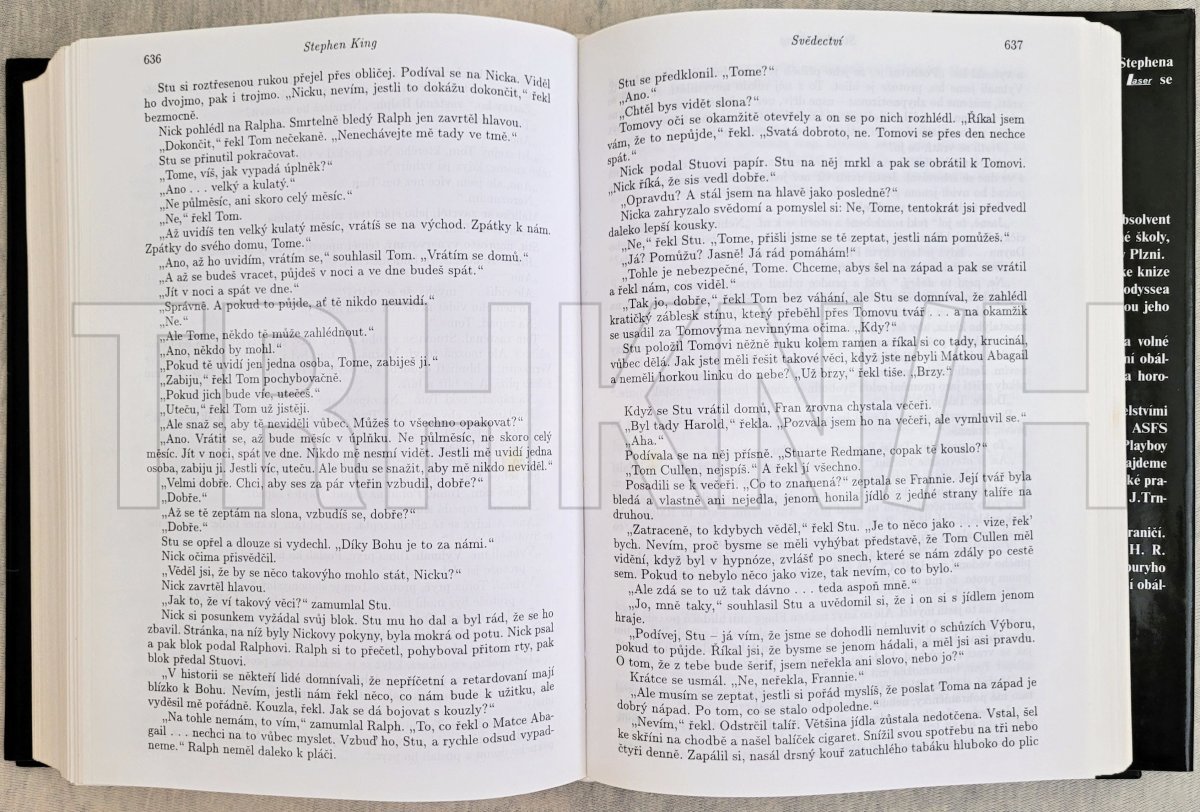 636
Stephen King
Stu si roztřesenou rukou přejel přes obličej. Podíval se na Nicka. Viděl
ho dvojmo, pak i trojmo. „Nicku, nevím, jestli to dokážu dokončit,“ řekl
bezmocně.
Nick pohlédl na Ralpha. Smrtelně bledý Ralph jen zavrtěl hlavou.
„Dokončit,“ řekl Tom nečekaně. „Nenechávejte mě tady ve tmě.“
Stu se přinutil pokračovat.
„Tome, víš, jak vypadá úplněk?“
„Ano . . . velký a kulatý.“
„Ne půlměsíc, ani skoro celý měsíc.“
„Ne,“ řekl Tom.
„Až uvidíš ten velký kulatý měsíc, vrátíš se na východ. Zpátky k nám.
Zpátky do svého domu, Tome.“
„Ano, až ho uvidím, vrátím se,“ souhlasil Tom. „Vrátím se domů.“
„A až se budeš vracet, půjdeš v noci a ve dne budeš spát.“
„Jít v noci a spát ve dne.“
„Správně. A pokud to půjde, ať tě nikdo neuvidí.“
„Ne.“
„Ale Tome, někdo tě může zahlédnout.“
„Ano, někdo by mohl.“
„Pokud tě uvidí jen jedna osoba, Tome, zabiješ ji.“
„Zabiju,“ řekl Tom pochybovačně.
„Pokud jich bude víc, utečeš.“
„Uteču,“ řekl Tom už jistěji.
„Ale snaž se, aby tě neviděli vůbec. Můžeš to všechno opakovat?“
„Ano. Vrátit se, až bude měsíc v úplňku. Ne půlměsíc, ne skoro celý
měsíc. Jít v noci, spát ve dne. Nikdo mě nesmí vidět. Jestli mě uvidí jedna
osoba, zabiju ji. Jestli víc, uteču. Ale budu se snažit, aby mě nikdo neviděl.“
„Velmi dobře. Chci, aby ses za pár vteřin vzbudil, dobře?“
„Dobře.“
„Až se tě zeptám na slona, vzbudíš se, dobře?“
„Dobře.“
Stu se opřel a dlouze si vydechl. „Díky Bohu je to za námi.“
Nick očima přisvědčil.
„Věděl jsi, že by se něco takovýho mohlo stát, Nicku?“
Nick zavrtěl hlavou.
„Jak to, že ví takový věci?“ zamumlal Stu.
Nick si posunkem vyžádal svůj blok. Stu mu ho dal a byl rád, že se ho
zbavil. Stránka, na níž byly Nickovy pokyny, byla mokrá od potu. Nick psal
a pak blok podal Ralphovi. Ralph si to přečetl, pohyboval přitom rty, pak
blok předal Stuovi.
„V historii se někteří lidé domnívali, že nepříčetní a retardovaní mají
blízko k Bohu. Nevím, jestli nám řekl něco, co nám bude k užitku, ale
vyděsil mě pořádně. Kouzla, řekl. Jak se dá bojovat s kouzly?“
„Na tohle nemám, to vím,“ zamumlal Ralph. „To, co řekl o Matce Aba-
gail . . . nechci na to vůbec myslet. Vzbuď ho, Stu, a rychle odsud vypad-
neme.“ Ralph neměl daleko k pláči.
Svědectví
637
Stu se předklonil. „Tome?“
„Ano.“
„Chtěl bys vidět slona?“
Tomovy oči se okamžitě otevřely a on se po nich rozhlédl. „Říkal jsem
vám, že to nepůjde,“ řekl. „Svatá dobroto, ne. Tomovi se přes den nechce
spát.“
Nick podal Stuovi papír. Stu na něj mrkl a pak se obrátil k Tomovi.
„Nick říká, že sis vedl dobře.“
„Opravdu? A stál jsem na hlavě jako posledně?“
Nicka zahryzalo svědomí a pomyslel si: Ne, Tome, tentokrát jsi předvedl
daleko lepší kousky.
„Ne,“ řekl Stu. „Tome, přišli jsme se tě zeptat, jestli nám pomůžeš.“
„Já? Pomůžu? Jasně! Já rád pomáhám!“
„Tohle je nebezpečné, Tome. Chceme, abys šel na západ a pak se vrátil
a řekl nám, cos viděl.“
„Tak jo, dobře,“ řekl Tom bez váhání, ale Stu se domníval, že zahlédl
kratičký záblesk stínu, který přeběhl přes Tomovu tvář . . . a na okamžik
se usadil za Tomovýma nevinnýma očima. „Kdy?“
Stu položil Tomovi něžně ruku kolem ramen a říkal si co tady, krucinál,
vůbec dělá. Jak jste měli řešit takové věci, když jste nebyli Matkou Abagail
a neměli horkou linku do nebe? „Už brzy,“ řekl tiše. „Brzy.“
Když se Stu vrátil domů, Fran zrovna chystala večeři.
„Byl tady Harold,“ řekla. „Pozvala jsem ho na večeři, ale vymluvil se.“
„Aha.“
Podívala se na něj přísně. „Stuarte Redmane, copak tě kouslo?“
„Tom Cullen, nejspíš.“ A řekl jí všechno.
Posadili se k večeři. „Co to znamená?“ zeptala se Frannie. Její tvář byla
bledá a vlastně ani nejedla, jenom honila jídlo z jedné strany talíře na
druhou.
„Zatraceně, to kdybych věděl,“ řekl Stu. „Je to něco jako . . . vize, řek’
bych. Nevím, proč bysme se měli vyhýbat představě, že Tom Cullen měl
vidění, když byl v hypnóze, zvlášť po snech, které se nám zdály po cestě
sem. Pokud to nebylo něco jako vize, tak nevím, co to bylo.“
„Ale zdá se to už tak dávno . . . teda aspoň mně.“
„Jo, mně taky,“ souhlasil Stu a uvědomil si, že i on si s jídlem jenom
hraje.
„Podívej, Stu – já vím, že jsme se dohodli nemluvit o schůzích Výboru,
pokud to půjde. Říkal jsi, že bysme se jenom hádali, a měl jsi asi pravdu.
O tom, že z tebe bude šerif, jsem neřekla ani slovo, nebo jo?“
Krátce se usmál. „Ne, neřekla, Frannie.“
„Ale musím se zeptat, jestli si pořád myslíš, že poslat Toma na západ je
dobrý nápad. Po tom, co se stalo odpoledne.“
„Nevím,“ řekl. Odstrčil talíř. Většina jídla zůstala nedotčena. Vstal, šel
ke skříni na chodbě a našel balíček cigaret. Snížil svou spotřebu na tři nebo
čtyři denně. Zapálil si, nasál drsný kouř zatuchlého tabáku hluboko do plic
Stephena
Laser se
absolvent
é školy,
Plzni.
ke knize
odyssea
ou jeho
a volné
ní obál-
a horo-
elstvími
ASFS
Playboy
ajdeme
ké pra-
J.Trn-
raničí.
H. R.
í obál-
TRHKNIH